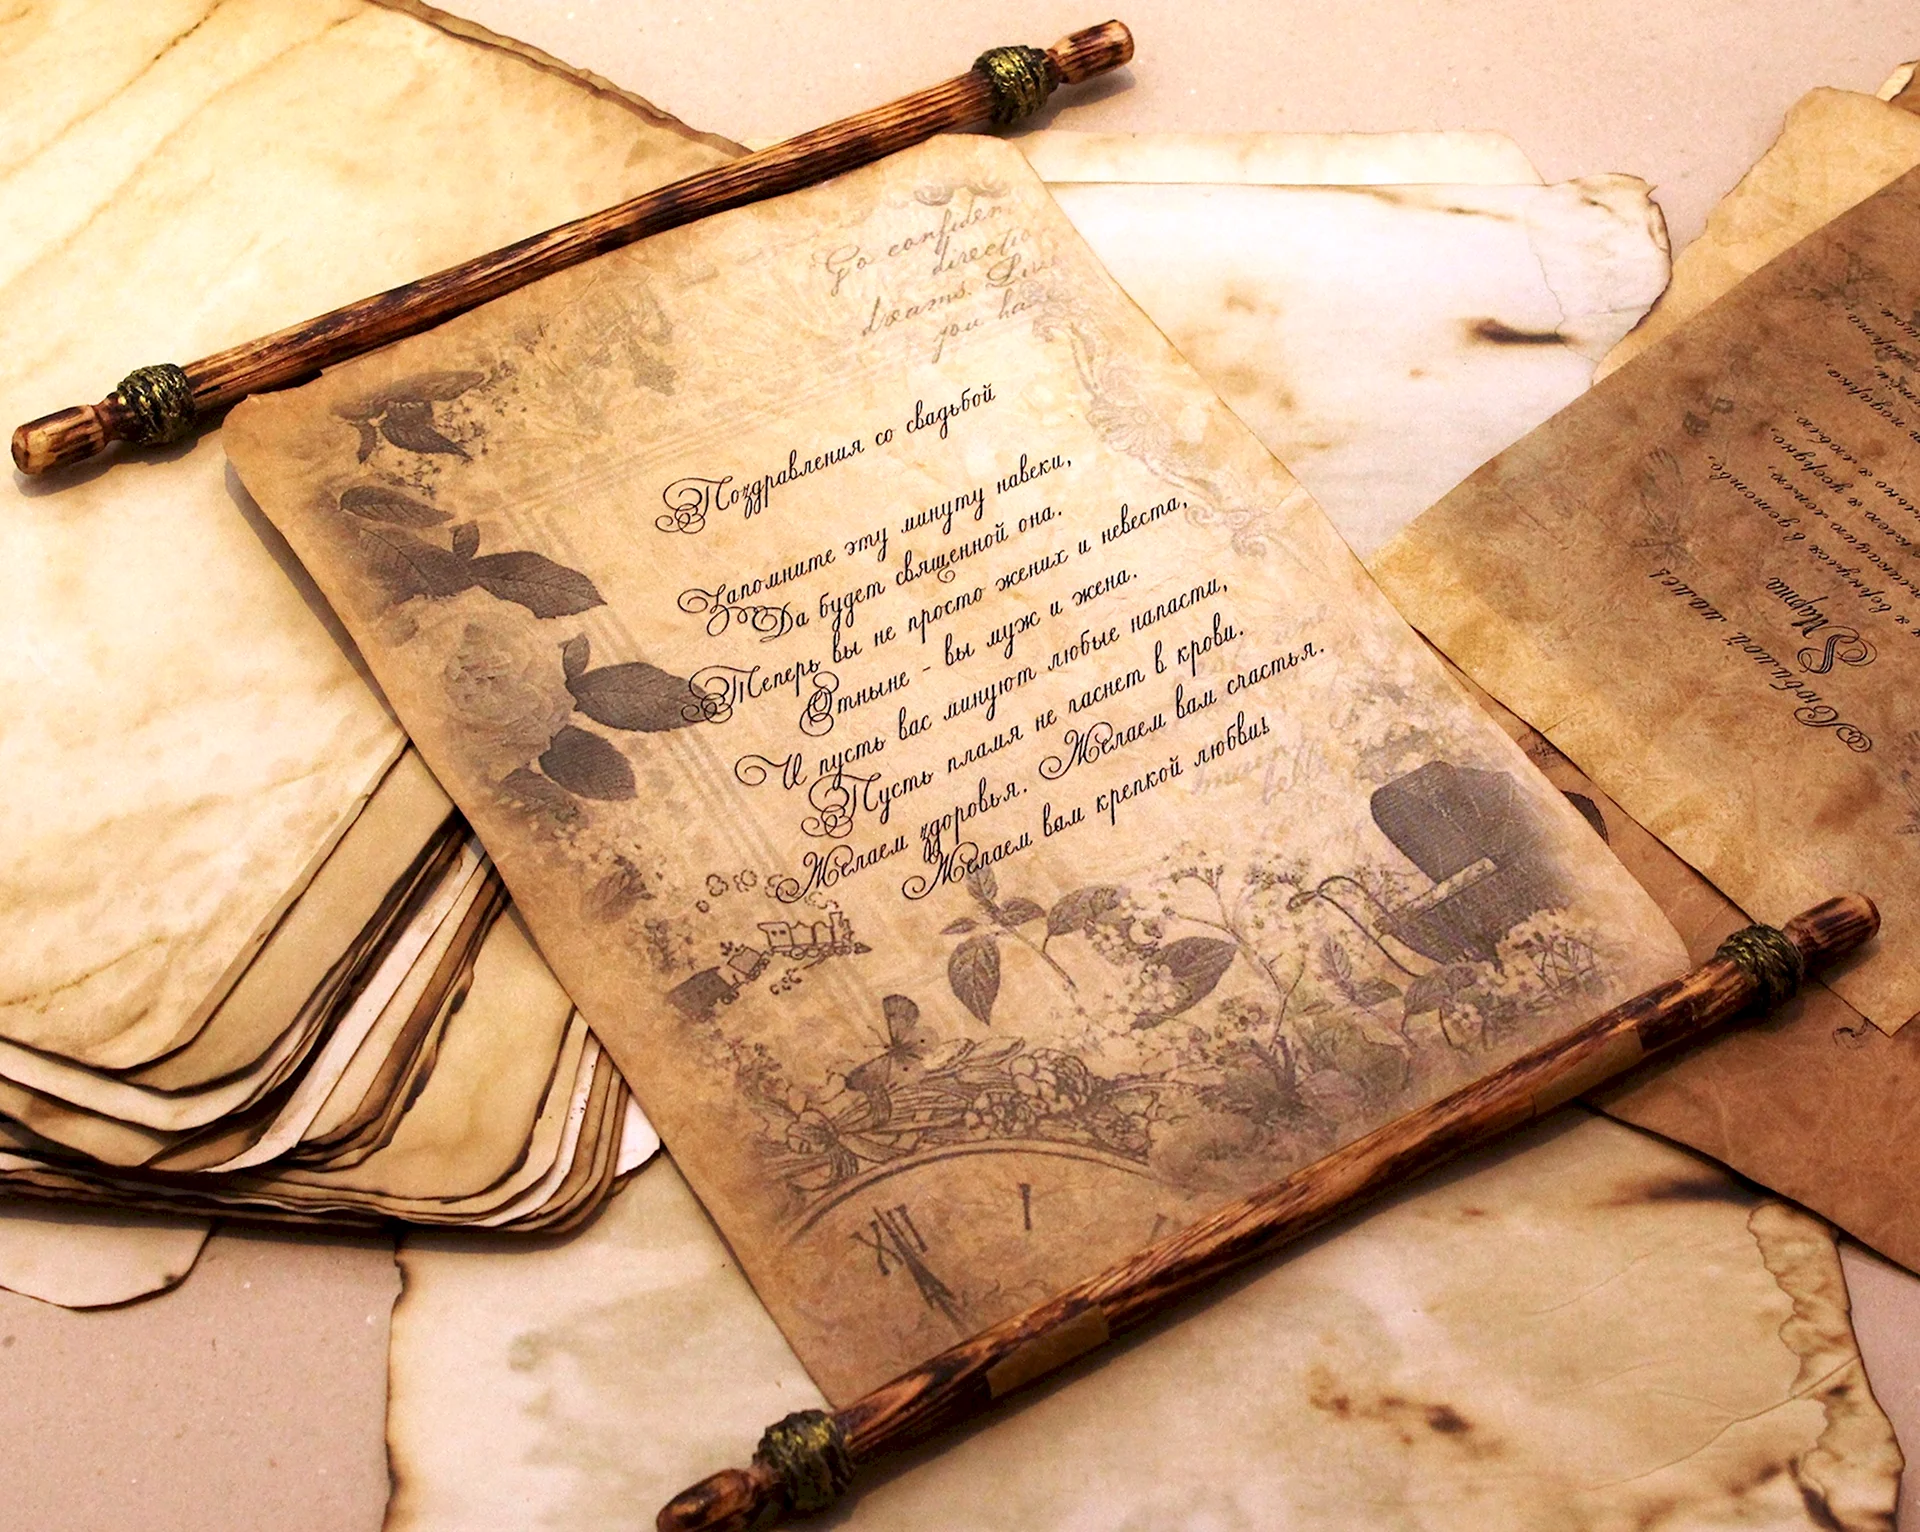 Go confiden
directio
dreams. Live
you ha
Поздравления со свадьбой
Запомните эту минуту навеки,
Да будет священной она.
Теперь вы не просто жених и невеста,
Отныне - вы муж и жена.
И пусть вас минуют любые напасти,
Пусть пламя не гаснет в крови.
Желаем здоровья. Желаем вам счастья.
Желаем вам крепкой любви!
XII
I
Любимой маме!
8 Марта
вернуться в детство,